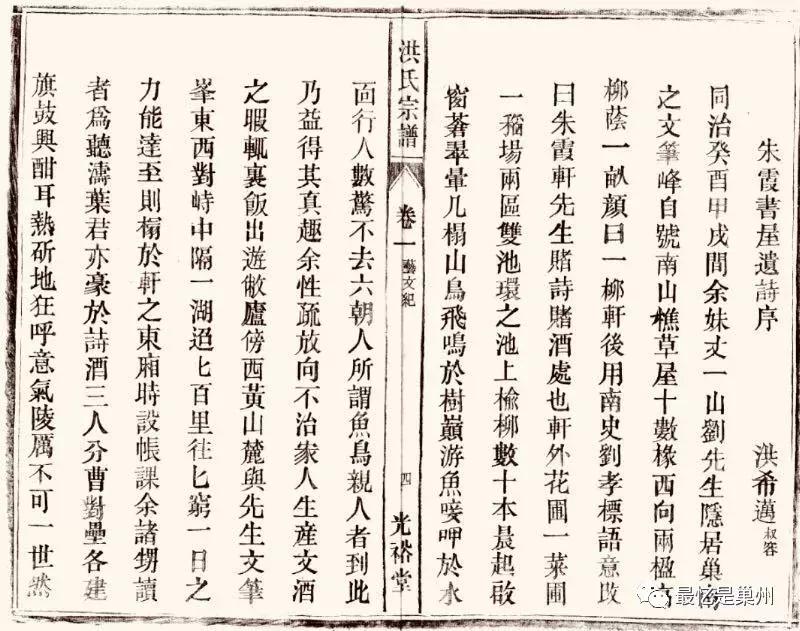 朱霞書屋遺詩序 洪希邁 叔容
同治癸酉甲戌間余妹丈一山劉先生隱居巢
之文筆峰自號南山樵草屋十數椽西向兩楹
柳蔭一畝顏曰一柳軒後用南史劉孝標語意改
曰朱霞軒先生賭詩賭酒處也軒外花圃一菜圃
一稻場兩區雙池環之池上楡柳數十本晨起啟
窗蒼翠暈几榻山鳥飛鳴於樹巔游魚唼呷於水
洪氏宗譜 卷一 藝文紀 四 光裕堂
面行人數驚不去六朝人所謂魚鳥親人者到此
乃益得其真趣余性疏放向不治家人生産文酒
之暇輒裏飯出遊敝廬傍西黃山麓與先生文筆
峯東西對峙中隔一湖迢匕百里往匕窮一日之
力能達至則榻於軒之東廂時設帳課余諸甥讀
者爲聽濤葉君亦豪於詩酒三人分曹對壘各建
旗鼓興酣耳熱斫地狂呼意氣陵厲不可一世然
最忆是巢州